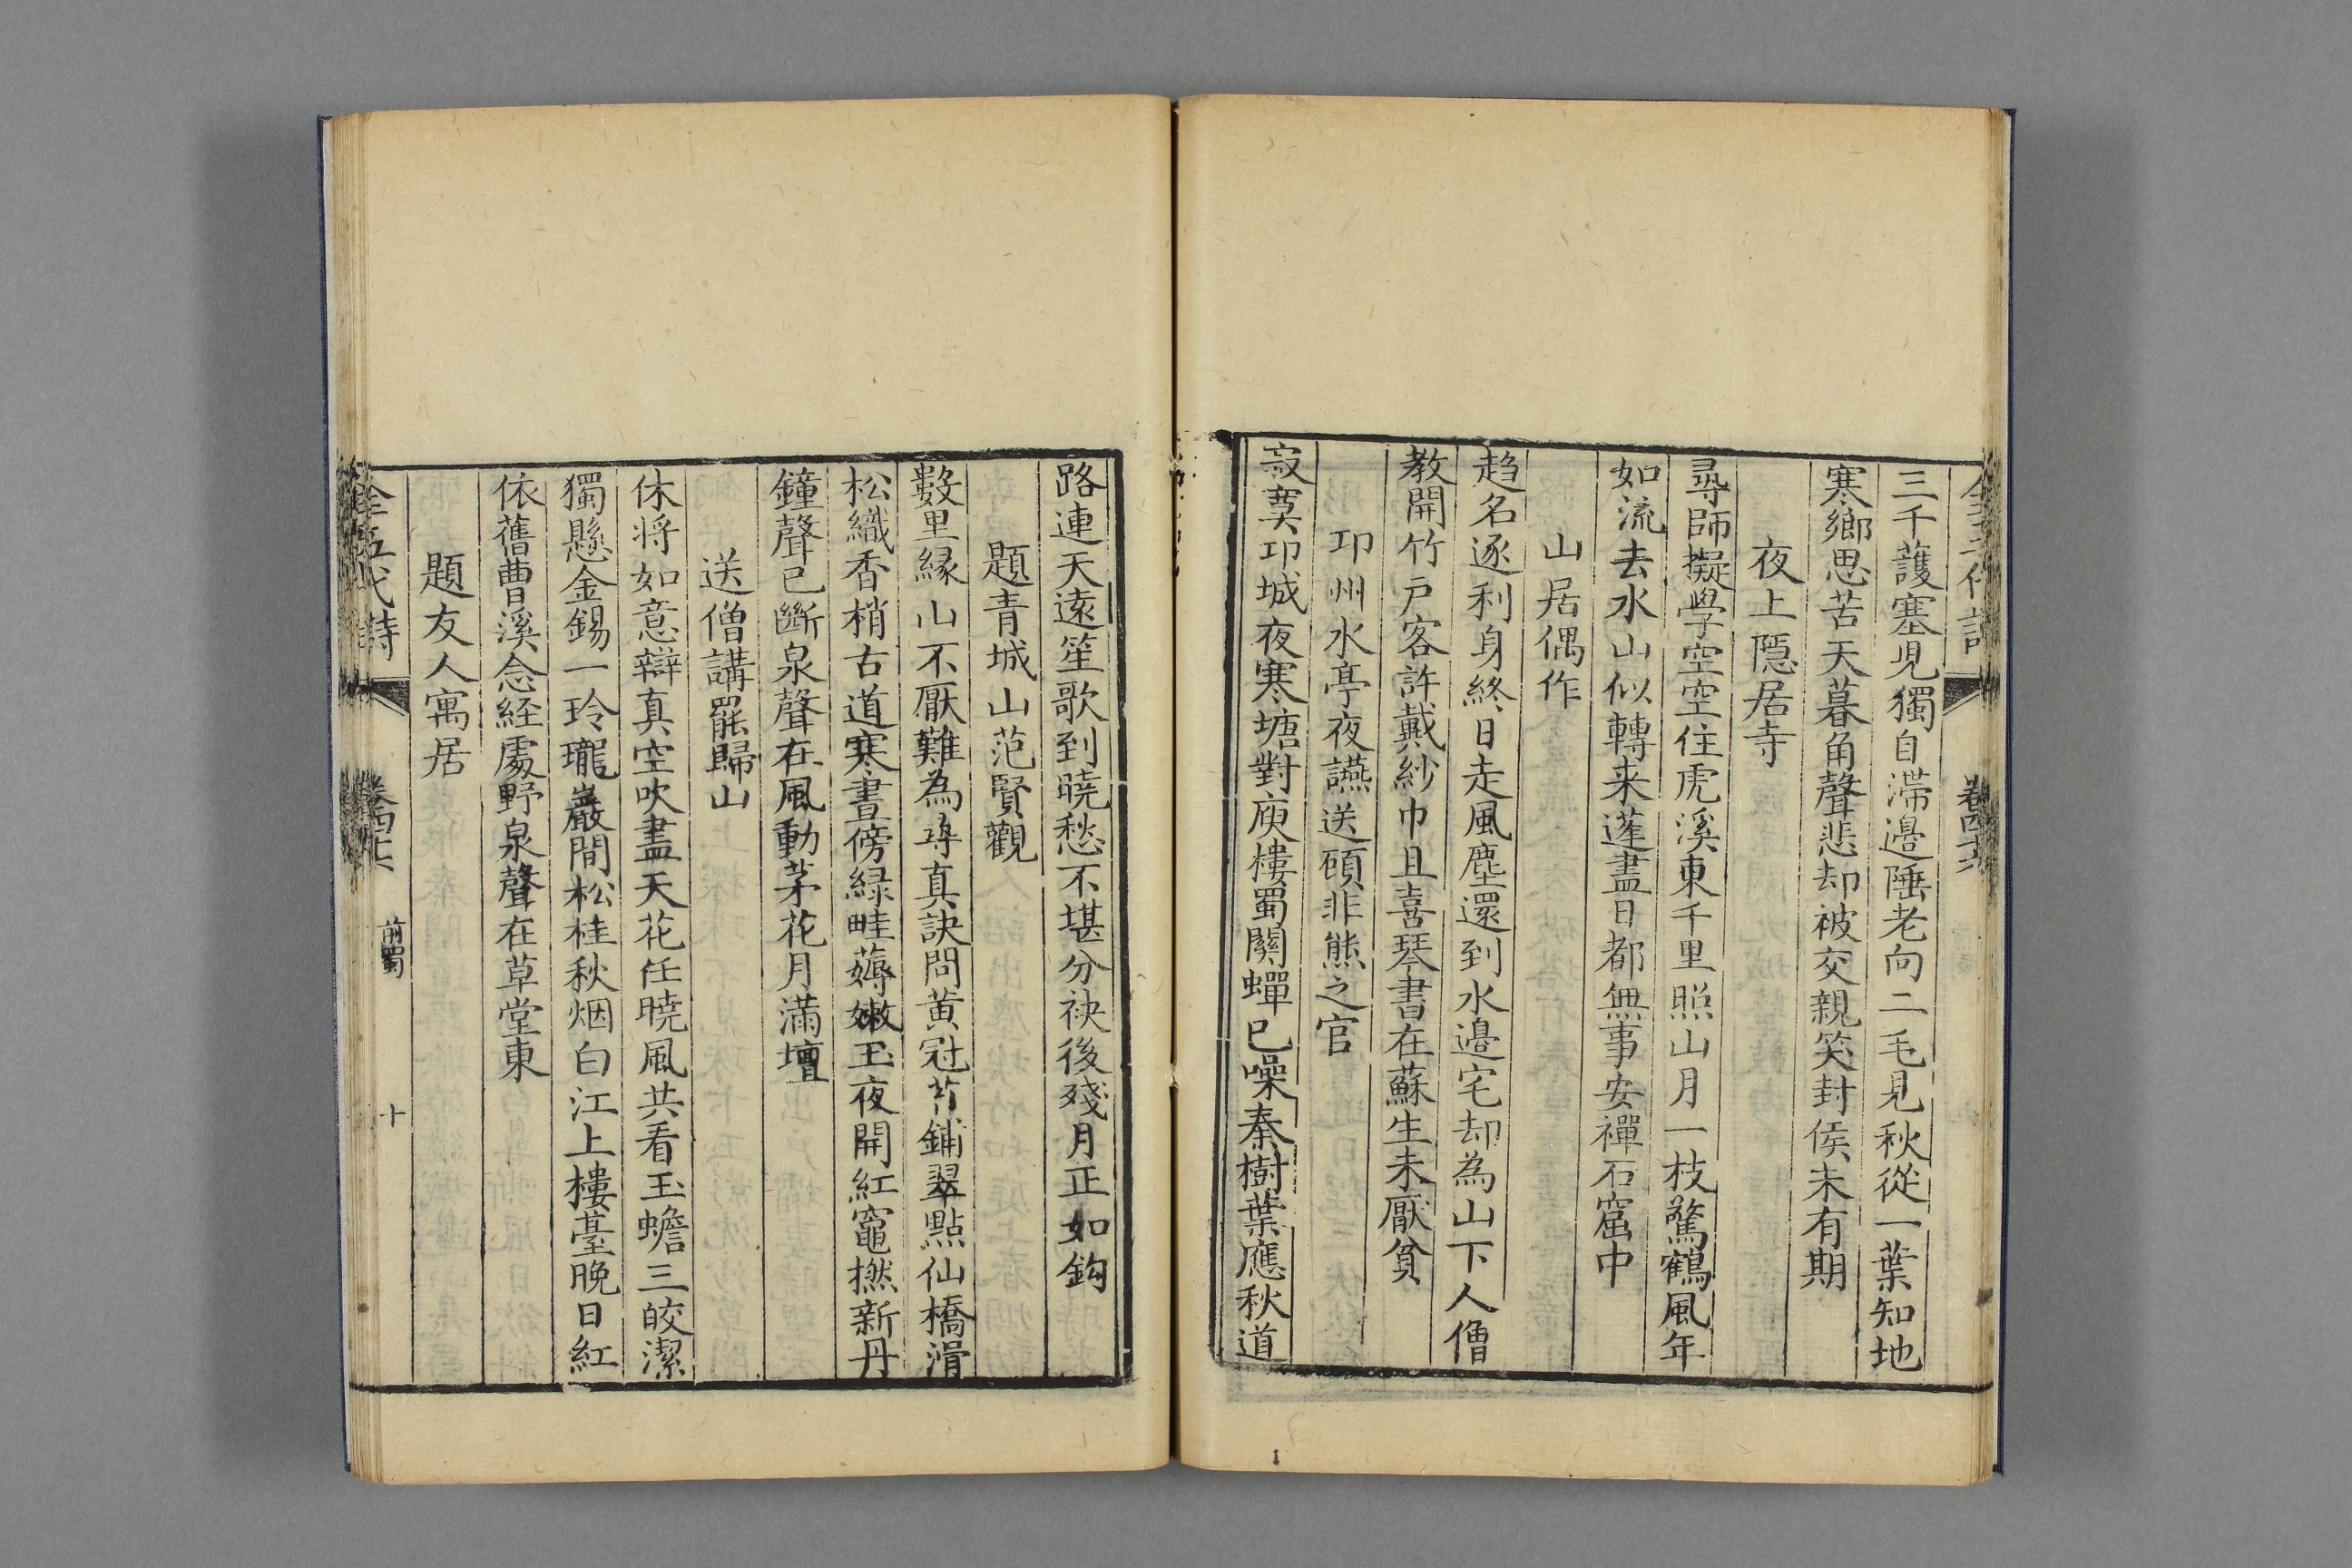 三千護塞兒獨自滯邉陲老向二毛見秋從一葉知地
寒鄉思苦天暮角聲悲却被交親笑封侯未有期
夜上隱居寺
尋師擬學空空住虎溪東千里照山月一枝驚鶴風年
如流去水山似轉来蓬盡日都無事安禪石窟中
山居偶作
趋名逐利身終日走風塵還到水邉宅却為山下人僧
教開竹戸客許戴紗巾且喜琴書在蘇生未厭貧
卭州水亭夜讌送顧非熊之官
寂寞卭城夜寒塘對庾樓蜀關蟬已噪秦樹葉應秋道
路連天逺笙歌到曉愁不堪分袂後殘月正如鈎
題青城山范賢觀
數里緣山不厭難為尋真訣問黃冠苔鋪翠點仙橋滑
松織香梢古道寒晝傍緑畦薅嫩玉夜開紅竈撚新丹
鐘聲已斷泉聲在風動茅花月滿壇
送僧講罷歸山
休将如意辯真空吹盡天花任曉風共看玉蟾三皎潔
獨懸金錫一玲瓏巖間松桂秋烟白江上樓臺晚日紅
依舊曹溪念経處野泉聲在草堂東
題友人寓居
全五代詩
前蜀
十